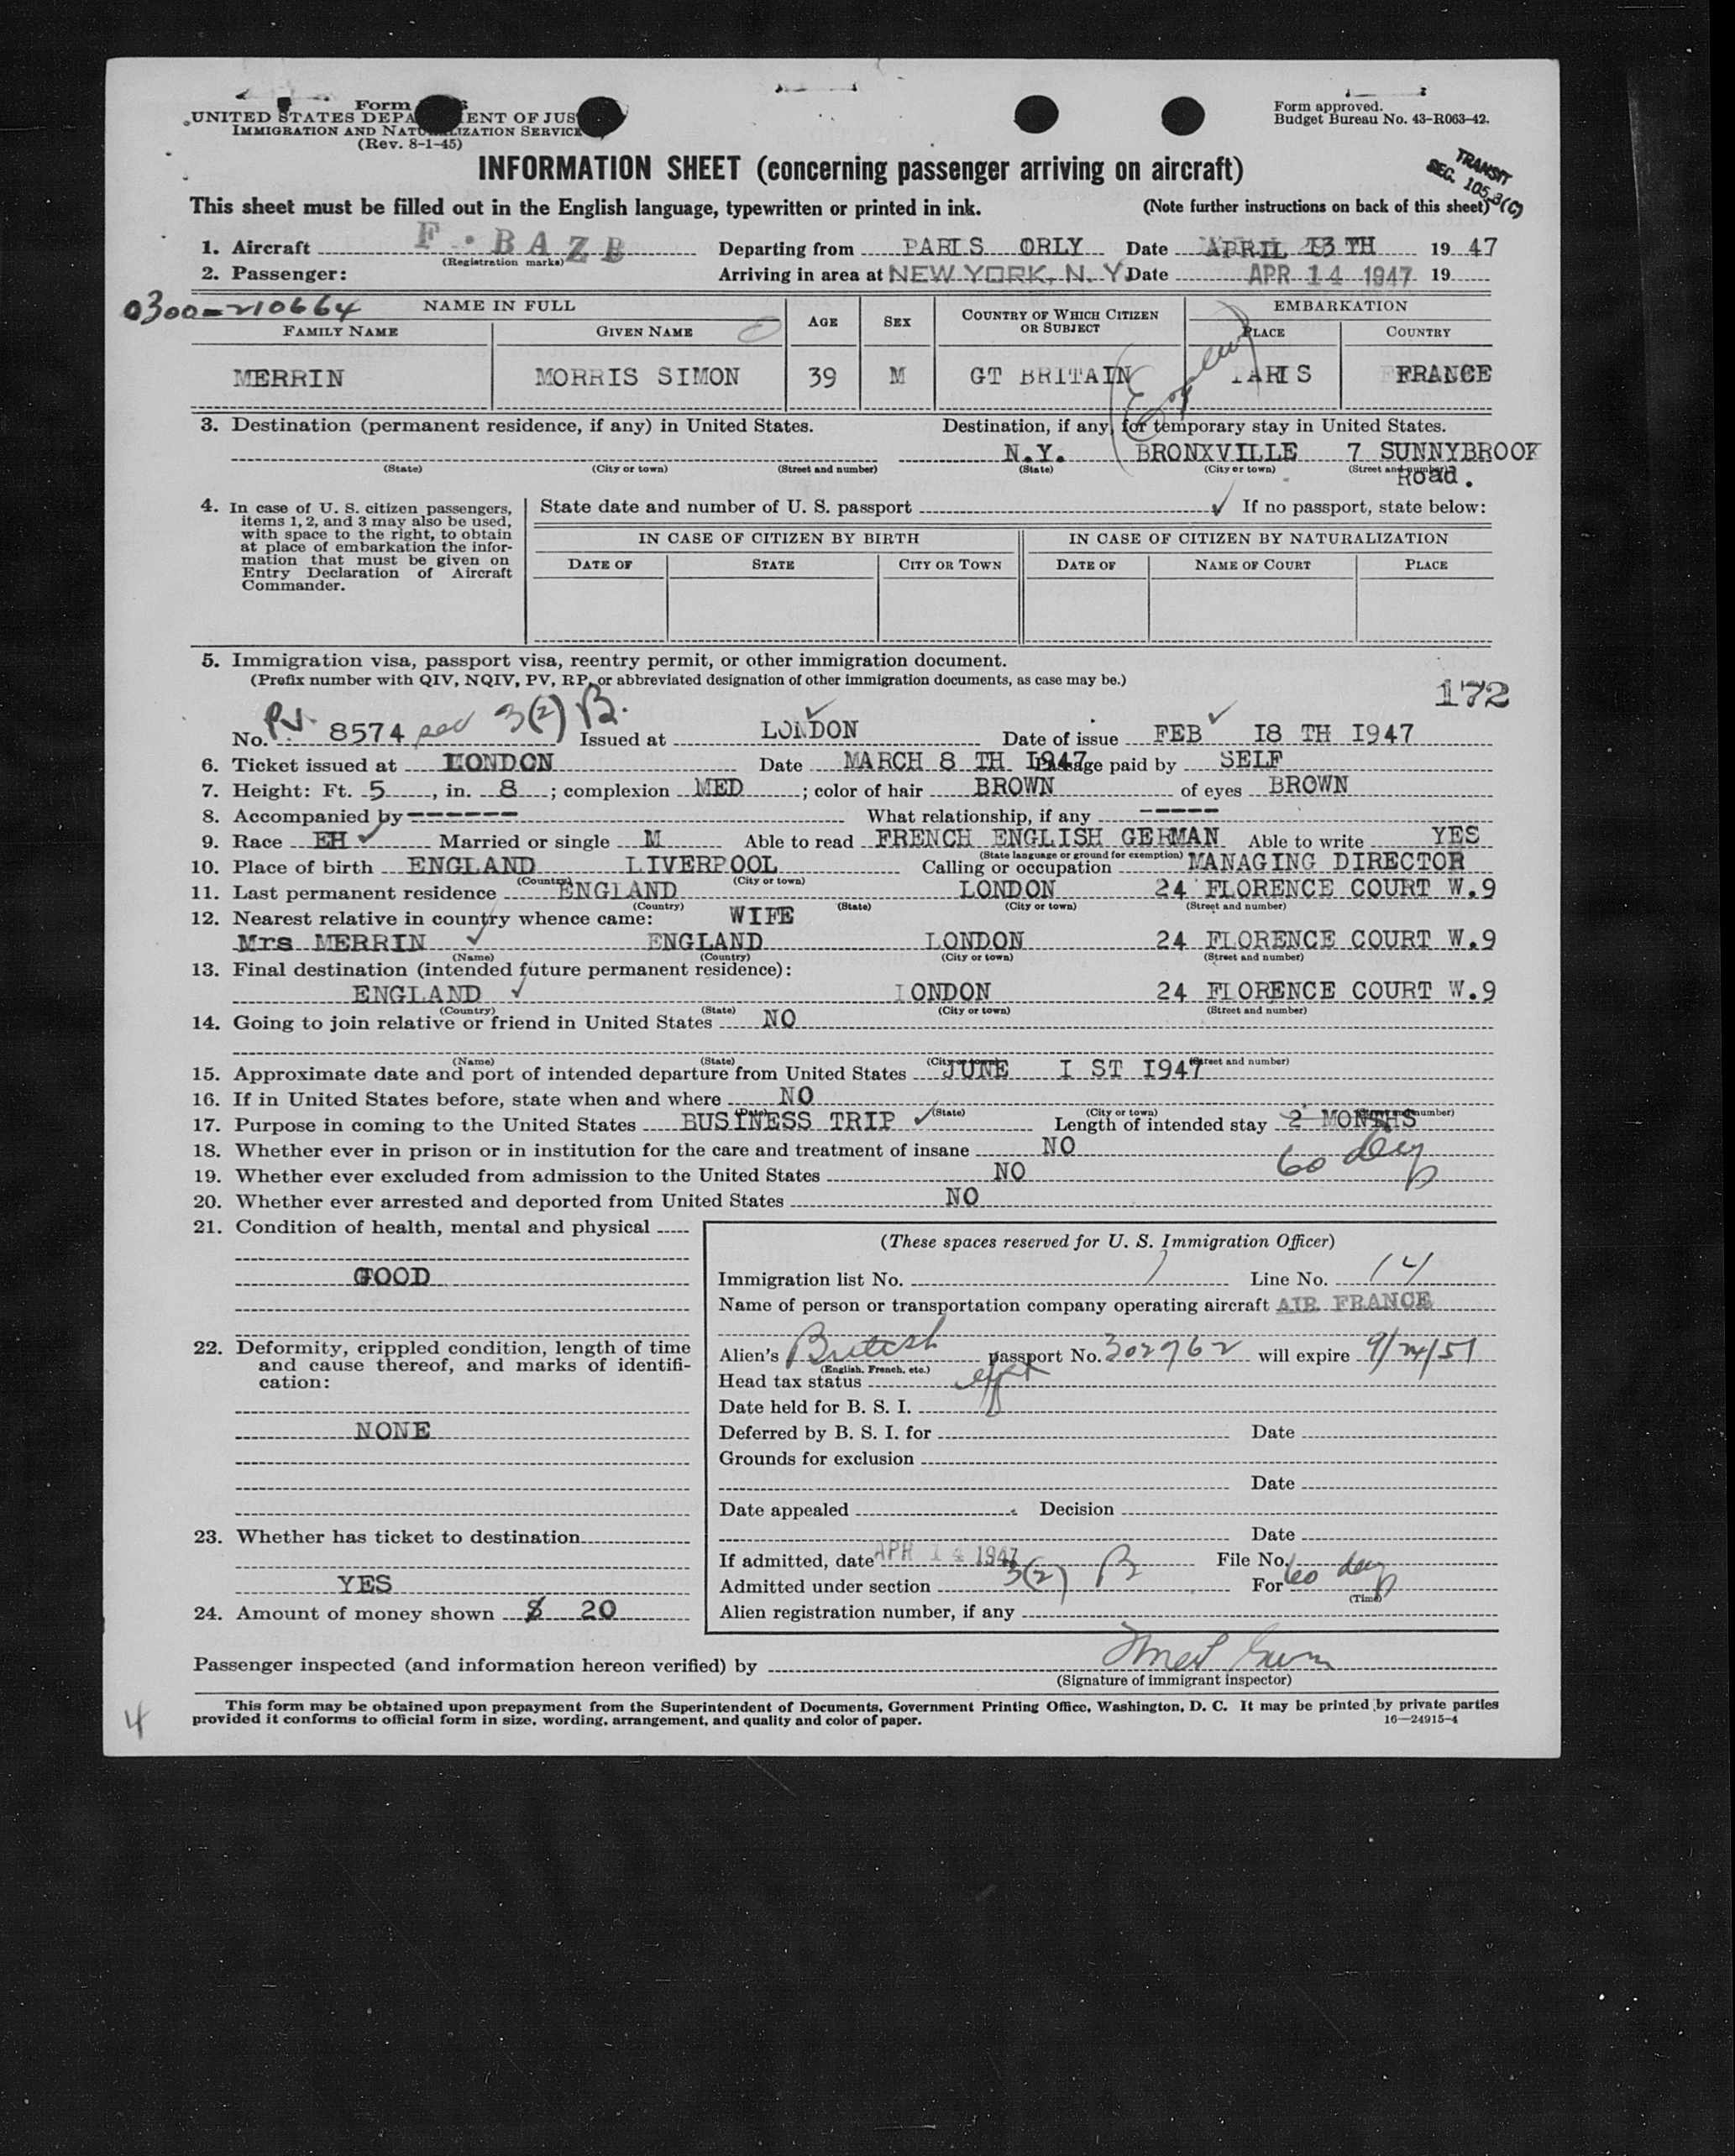 Form
UNITED STATES DEPA ENT OF JUS
IMMIGRATION AND NATURALIZATION SERVICE
(Rev. 8-1-45)
Form approved.
Budget Bureau No. 43-R063-42.
INFORMATION SHEET (concerning passenger arriving on aircraft)
TRANSIT
SEC. 105.3(C)
This sheet must be filled out in the English language, typewritten or printed in ink. (Note further instructions on back of this sheet)
1. Aircraft F. BAZE Departing from PARIS ORLY Date APRIL 13 TH 19 47
(Registration marks)
2. Passenger: Arriving in area at NEW YORK, N. Y. Date APR 14 1947 19
0300-210664
NAME IN FULL AGE SEX COUNTRY OF WHICH CITIZEN OR SUBJECT EMBARKATION
FAMILY NAME GIVEN NAME PLACE COUNTRY
MERRIN MORRIS SIMON 39 M GT BRITAIN PARIS FRANCE
3. Destination (permanent residence, if any) in United States. Destination, if any, for temporary stay in United States.
N.Y. BRONXVILLE 7 SUNNYBROOK
(State) (City or town) (Street and number) (State) (City or town) (Street and number)
Road.
4. In case of U. S. citizen passengers, items 1, 2, and 3 may also be used, with space to the right, to obtain at place of embarkation the information that must be given on Entry Declaration of Aircraft Commander.
State date and number of U. S. passport If no passport, state below:
IN CASE OF CITIZEN BY BIRTH IN CASE OF CITIZEN BY NATURALIZATION
DATE OF STATE CITY OR TOWN DATE OF NAME OF COURT PLACE
5. Immigration visa, passport visa, reentry permit, or other immigration document.
(Prefix number with QIV, NQIV, PV, RP, or abbreviated designation of other immigration documents, as case may be.)
172
No. P.V. 8574 sec 3(2) B. Issued at LONDON Date of issue FEB 18 TH 1947
6. Ticket issued at LONDON Date MARCH 8 TH 1947 Passage paid by SELF
7. Height: Ft. 5, in. 8; complexion MED; color of hair BROWN of eyes BROWN
8. Accompanied by ------- What relationship, if any -----
9. Race EH Married or single M Able to read FRENCH ENGLISH GERMAN Able to write YES
(State language or ground for exemption)
10. Place of birth ENGLAND LIVERPOOL Calling or occupation MANAGING DIRECTOR
(Country) (City or town)
11. Last permanent residence ENGLAND LONDON 24 FLORENCE COURT W.9
(Country) (State) (City or town) (Street and number)
12. Nearest relative in country whence came: WIFE
Mrs MERRIN ENGLAND LONDON 24 FLORENCE COURT W.9
(Name) (Country) (City or town) (Street and number)
13. Final destination (intended future permanent residence):
ENGLAND LONDON 24 FLORENCE COURT W.9
(Country) (State) (City or town) (Street and number)
14. Going to join relative or friend in United States NO
(Name) (State) (City or town) (Street and number)
15. Approximate date and port of intended departure from United States JUNE I ST 1947
16. If in United States before, state when and where NO
(Date) (State) (City or town) (Street and number)
17. Purpose in coming to the United States BUSINESS TRIP Length of intended stay 2 MONTHS
18. Whether ever in prison or in institution for the care and treatment of insane NO
60 days
19. Whether ever excluded from admission to the United States NO
20. Whether ever arrested and deported from United States NO
21. Condition of health, mental and physical
GOOD
22. Deformity, crippled condition, length of time and cause thereof, and marks of identification:
NONE
23. Whether has ticket to destination
YES
24. Amount of money shown $ 20
(These spaces reserved for U. S. Immigration Officer)
Immigration list No. 1 Line No. 14
Name of person or transportation company operating aircraft AIR FRANCE
Alien's British passport No. 302762 will expire 9/24/51
(English, French, etc.)
Head tax status
Date held for B. S. I.
Deferred by B. S. I. for Date
Grounds for exclusion
Date
Date appealed Decision
Date
If admitted, date APR 14 1947 File No.
Admitted under section 3(2) B For 60 days
(Time)
Alien registration number, if any
Passenger inspected (and information hereon verified) by
(Signature of immigrant inspector)
This form may be obtained upon prepayment from the Superintendent of Documents, Government Printing Office, Washington, D. C. It may be printed by private parties
provided it conforms to official form in size, wording, arrangement, and quality and color of paper. 16—24915-4
4